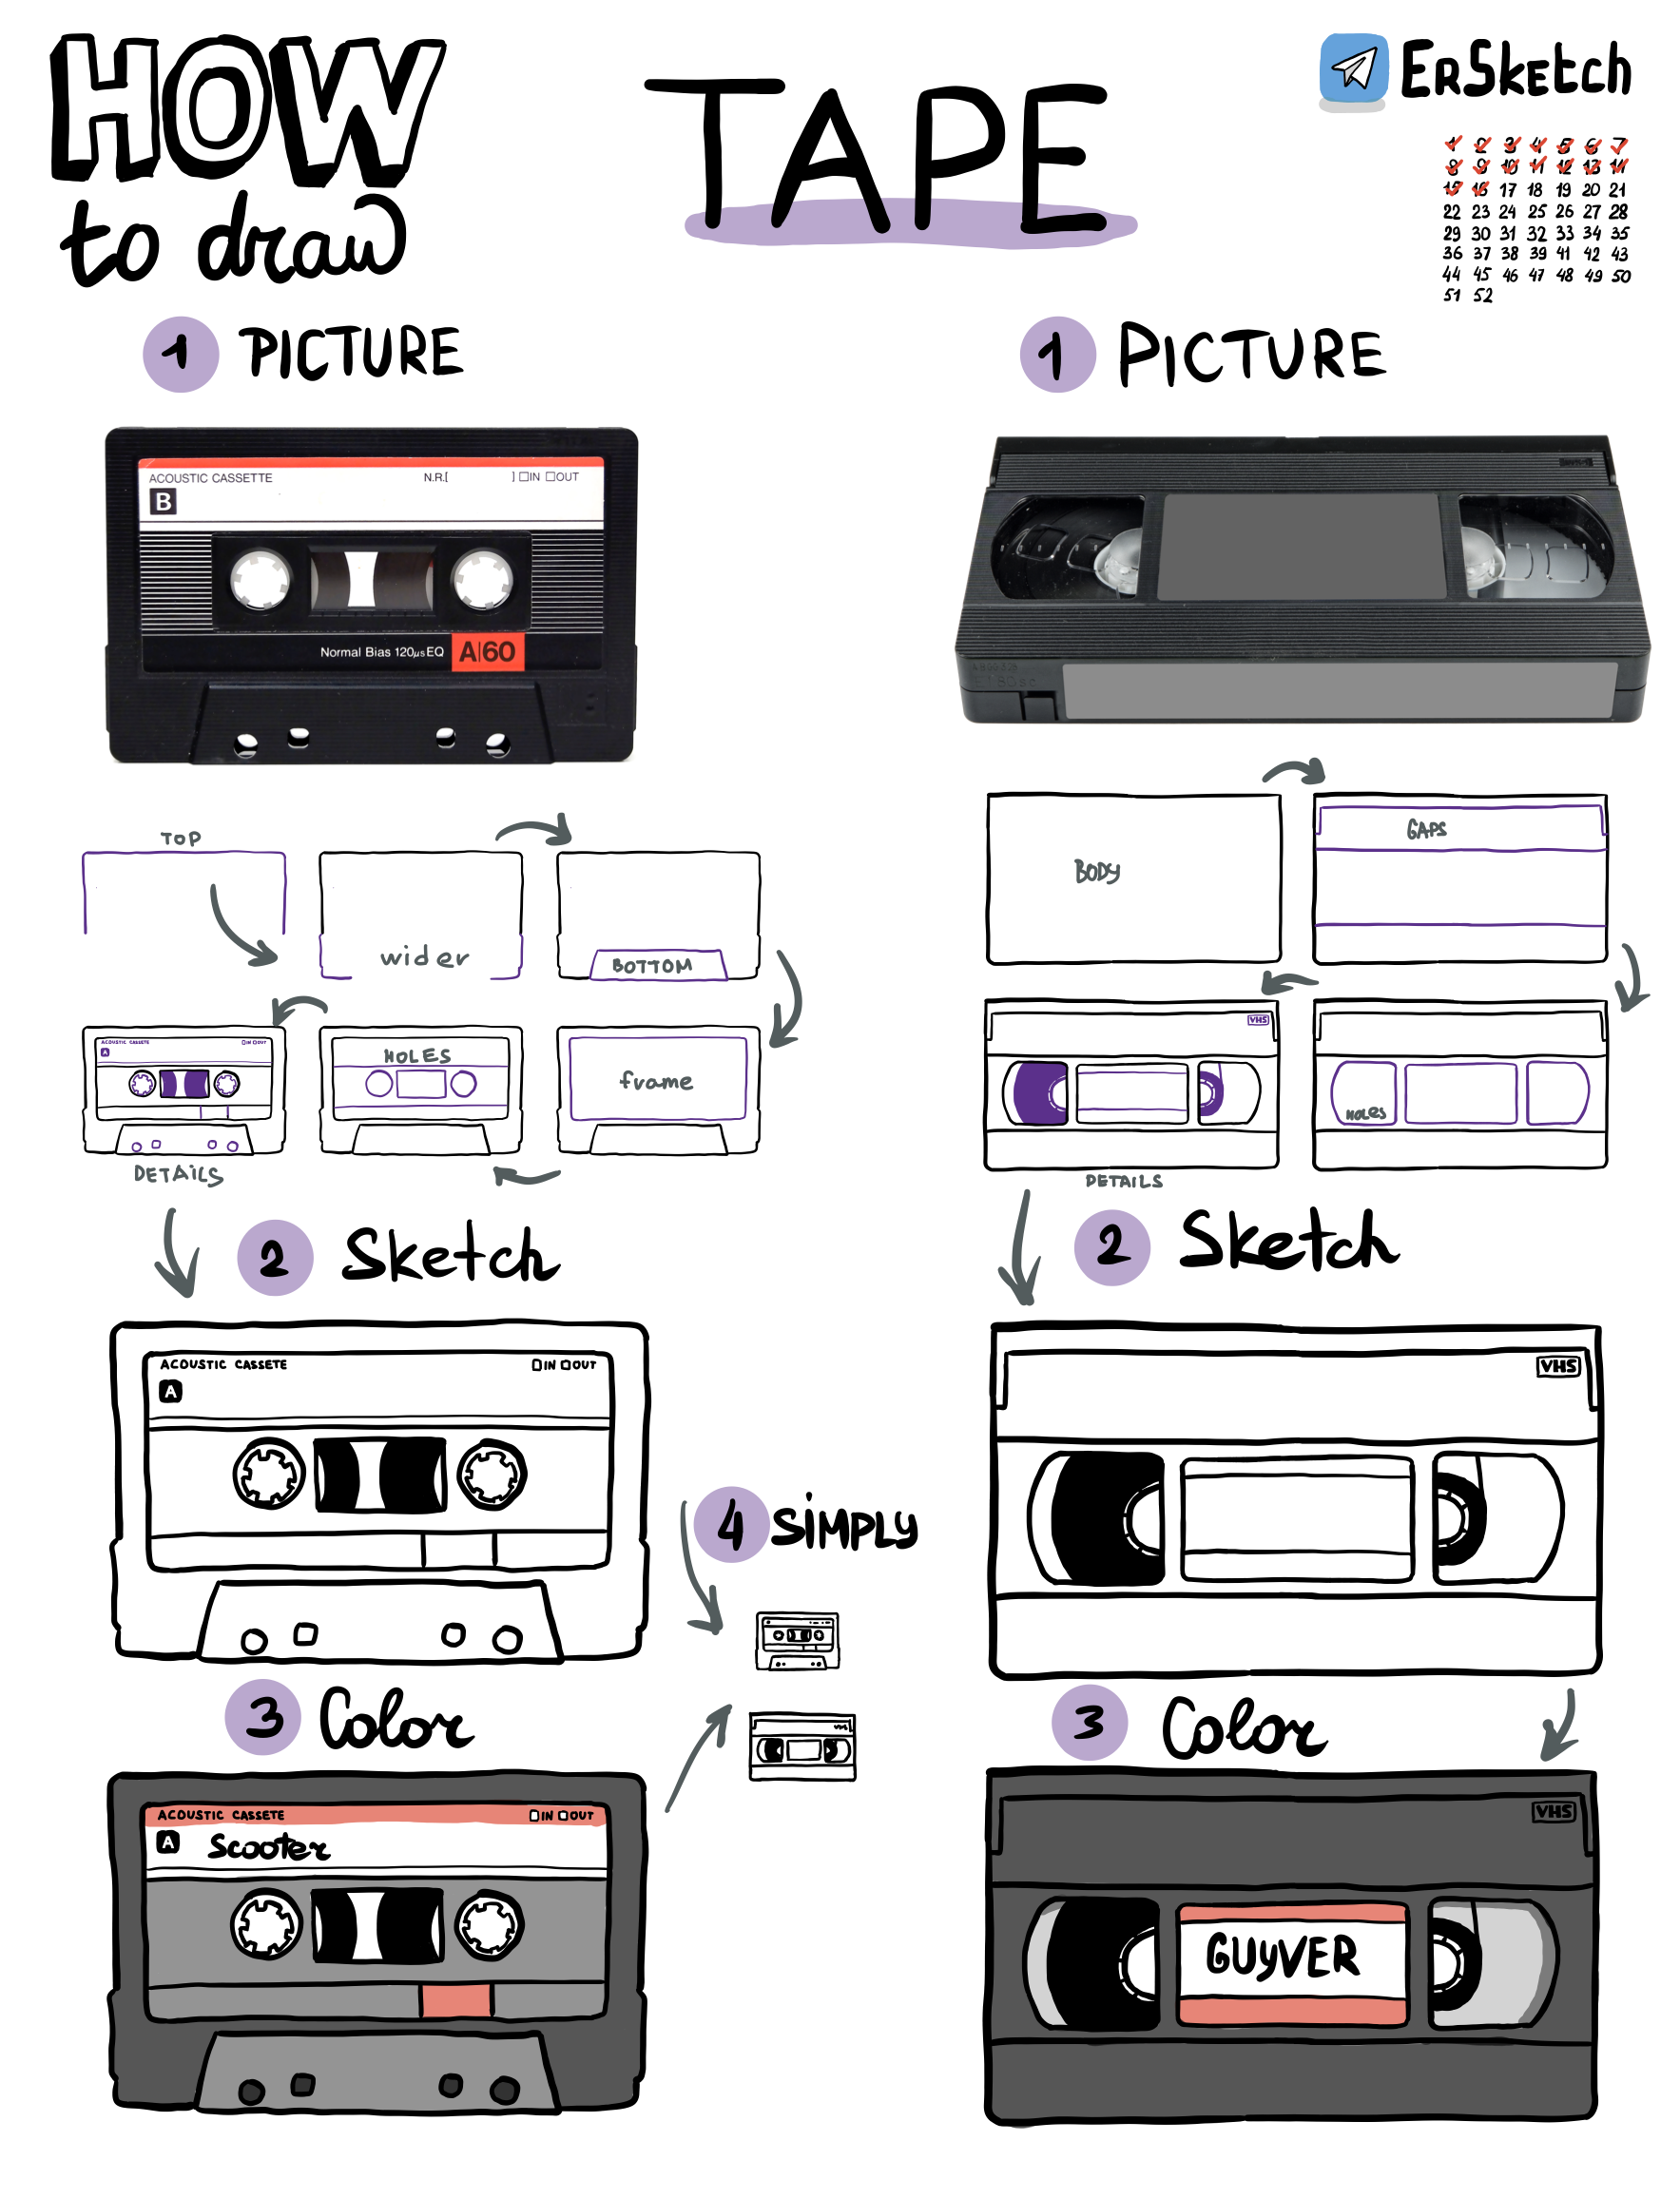 HOW
to draw
TAPE
ErSketch
1 2 3 4 5 6 7
8 9 10 11 12 13 14
15 16 17 18 19 20 21
22 23 24 25 26 27 28
29 30 31 32 33 34 35
36 37 38 39 41 42 43
44 45 46 47 48 49 50
51 52
1 PICTURE
ACOUSTIC CASSETTE N.R.[ ] IN OUT
B
Normal Bias 120µs EQ A|60
TOP
wider
BOTTOM
frame
HOLES
ACOUSTIC CASSETE IN OUT
A
DETAILS
2 Sketch
ACOUSTIC CASSETE IN OUT
A
3 Color
ACOUSTIC CASSETE IN OUT
A Scooter
4 SIMPLY
VHS
1 PICTURE
BODY
GAPS
HOLES
VHS
DETAILS
2 Sketch
VHS
3 Color
VHS
GUYVER